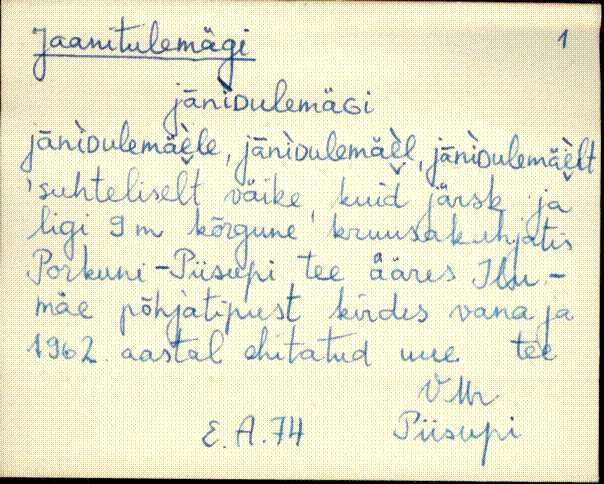 Jaanitulemägi
1
jāniDulemäGi
jānìDulemäèle, jānìDulemäèl, jānìDulemäèlt
'suhteliselt väike, kuid järsk ja
ligi 9 m kõrgune kruusakuhjatis
Porkuni-Piisupi tee ääres Ilu-
mäe põhjatipust kirdes vana ja
1962. aastal ehitatud uue tee
VMr
E. A. 74 Piisupi